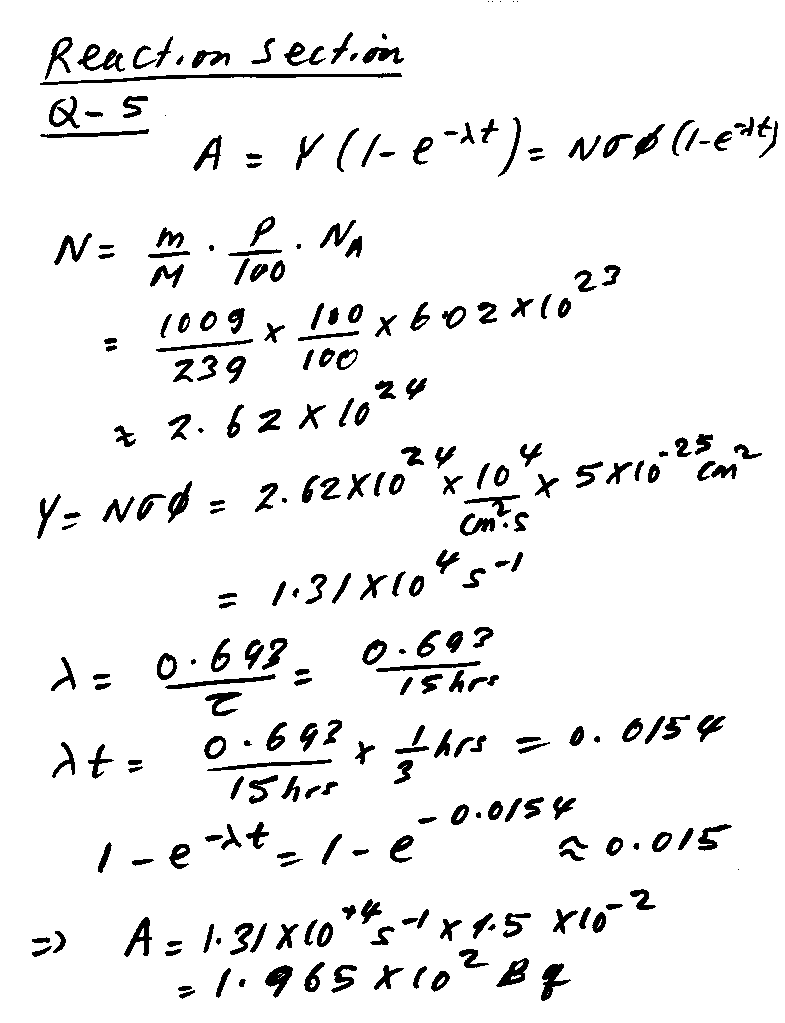 Reaction section
Q-5
A = Y (1-e^{-λt}) = Nσφ (1-e^{-λt})
N = m/M · P/100 · N_A
= 100g/239 × 100/100 × 6.02 × 10^{23}
≈ 2.62 × 10^{24}
Y = Nσφ = 2.62×10^{24} × 10^4/cm^2.s × 5×10^{-25} cm^2
= 1.31×10^4 s^{-1}
λ = 0.693/τ = 0.693/15hrs
λt = 0.693/15hrs × 1/3 hrs = 0.0154
1-e^{-λt} = 1-e^{-0.0154} ≈ 0.015
=> A = 1.31×10^{+4} s^{-1} × 1.5 × 10^{-2}
= 1.965 × 10^2 Bq